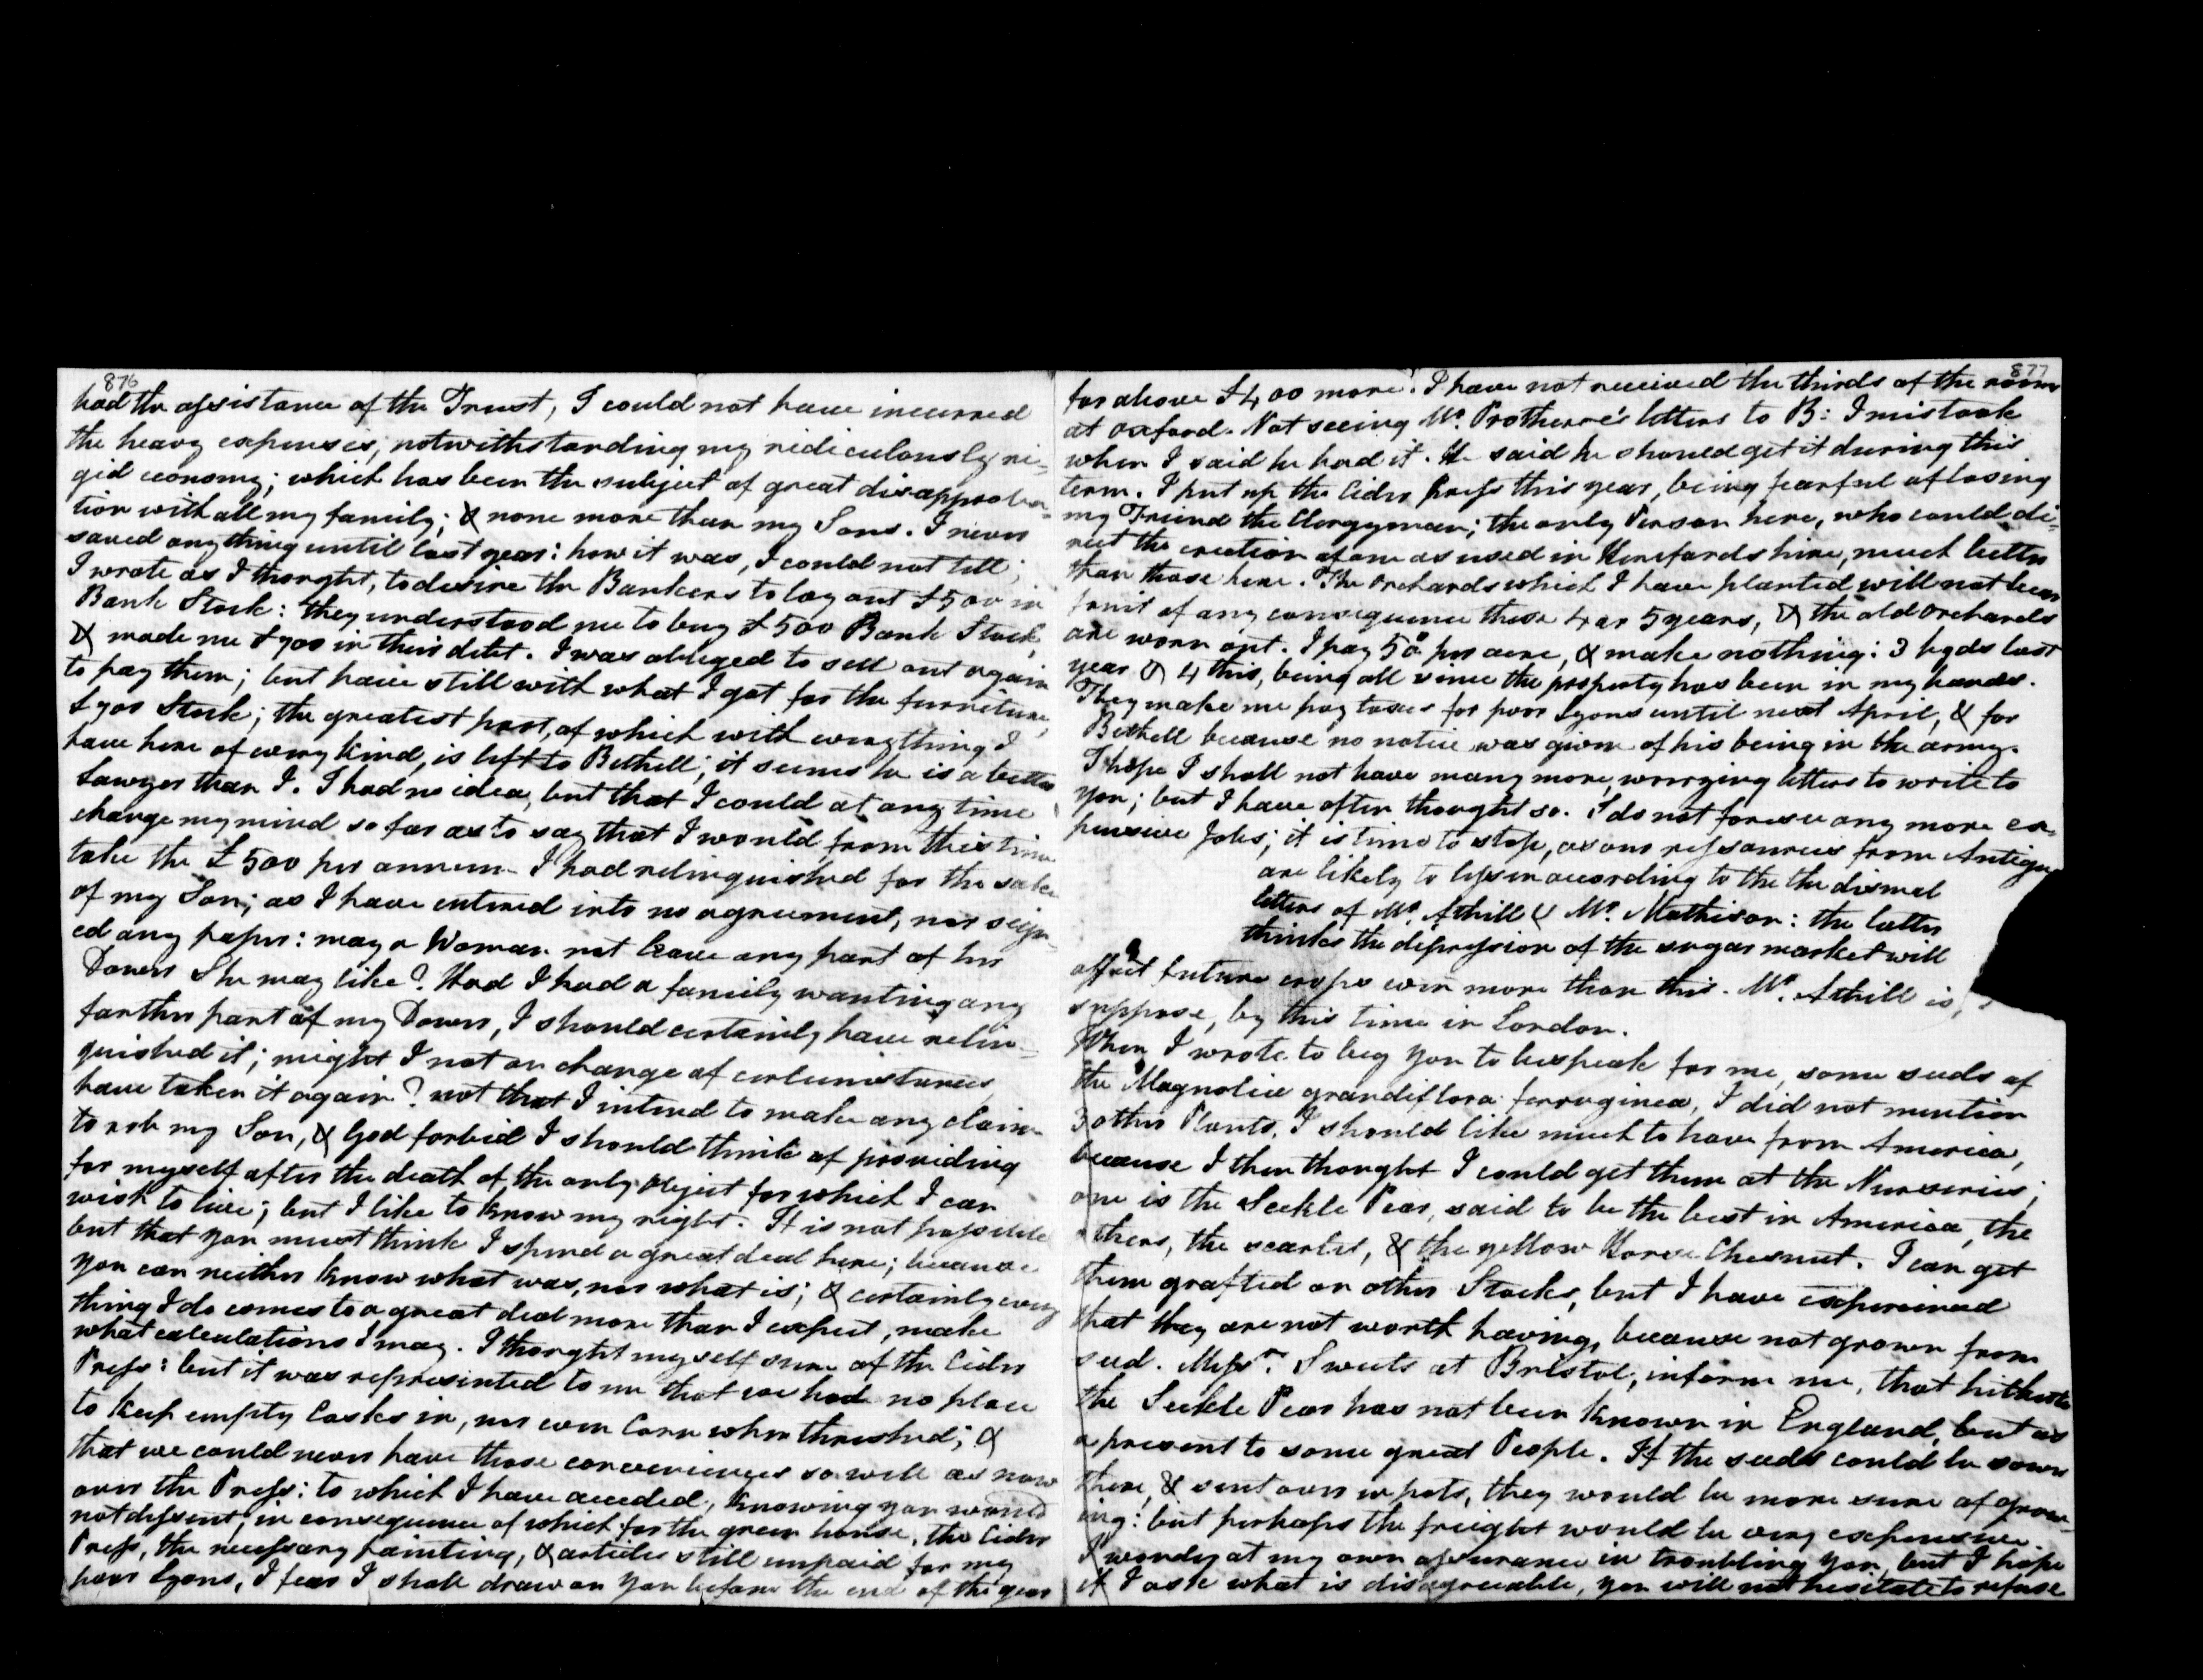 876
had the assistance of the Trust, I could not have incurred
the heavy expenses, notwithstanding my rediculously ri=
gid economy; which has been the subject of great disapproba=
tion with all my family; & none more than my Sons. I never
saved anything until last year: how it was, I could not tell;
I wrote as I thought, to desire the Bankers to lay out £500 in
Bank Stock: they understood me to buy £500 Bank Stock,
& made me £700 in their debt. I was obliged to sell out again
to pay them; but have still with what I got for the furniture,
£700 Stock; the greatest part, of which with everything I
have here of every kind, is left to Bethell; it seems he is a better
Lawyer than I. I had no idea, but that I could at any time
change my mind so far as to say that I would, from this time
take the £500 per annum I had relinquished for the sake
of my Son; as I have entered into no agreement, nor seign=
ed any paper: may a Woman not leave any part of her
Dower She may like? Had I had a family wanting any
farther part of my Dower, I should certainly have relin=
quished it; might I not on change of circumstances,
have taken it again? not that I intend to make any claim
to rob my Son, & God forbid I should think of providing
for myself after the death of the only object for which I can
wish to live; but I like to know my right. It is not possible
but that you must think I spend a great deal here; because
you can neither know what was, nor what is; & certainly every
thing I do comes to a great deal more than I expect, make
what calculations I may. I thought myself sure of the Cider
Press: but it was represented to me that we had no place
to keep empty Casks in, nor even Corn when threshed; &
that we could never have those conveniences so well as now
over the Press: to which I have acceded, knowing you would
not dissent; in consequence of which for the green house, the Cider
Press, the necessary painting, & articles still unpaid for my
poor Lyons, I fear I shall draw on you before the end of the year
877
for above £400 more. I have not received the thirds of the room
at oxford. Not seeing Mr. Protheroe's letters to B: I mistook
when I said he had it. He said he should get it during this
term. I put up the Cider Press this year, being fearful of losing
my Friend the Clergyman; the only Person here, who could di=
rect the erection of one as used in Herefordshire, much better
than those here. The orchards which I have planted will not bear
fruit of any consequence these 4 or 5 years, & the old orchards
are worn out. I pay 50s. per acre, & make nothing: 3 hgds last
year & 4 this, being all since the property has been in my hands.
They make me pay taxes for poor Lyons until next April, & for
Bethell because no notice was given of his being in the army.
I hope I shall not have many more, worrying letters to write to
you; but I have often thought so. I do not foresee any more ex=
pensive Jobs; it is time to stop, as our ressources from Antigua
are likely to lessen according to the the dismal
letters of Mr. Athill & Mr. Mathison: the latter
thinks the depression of the sugar market will
affect future crops even more than this. Mr. Athill is,
suppose, by this time in London.
When I wrote to beg you to bespeak for me, some seeds of
the Magnolia grandiflora ferruginea, I did not mention
3 other Plants, I should like much to have from America,
because I then thought I could get them at the Nurseries;
one is the Seckle Pear, said to be the best in America, the
others, the scarlet, & the yellow Horse Chesnut. I can get
them grafted on other Stocks, but I have experienced
that they are not worth having, because not grown from
seed. Messrs. Sweets at Bristol, inform me, that hitherto
the Seckle Pear has not been known in England, but as
a present to some great People. If the seeds could be sown
there, & sent over in pots, they would be more sure of grow=
ing: but perhaps the freight would be very expensive.
I wonder at my own assurance in troubling you, but I hope
if I ask what is disagreeable, you will not hesitate to refuse